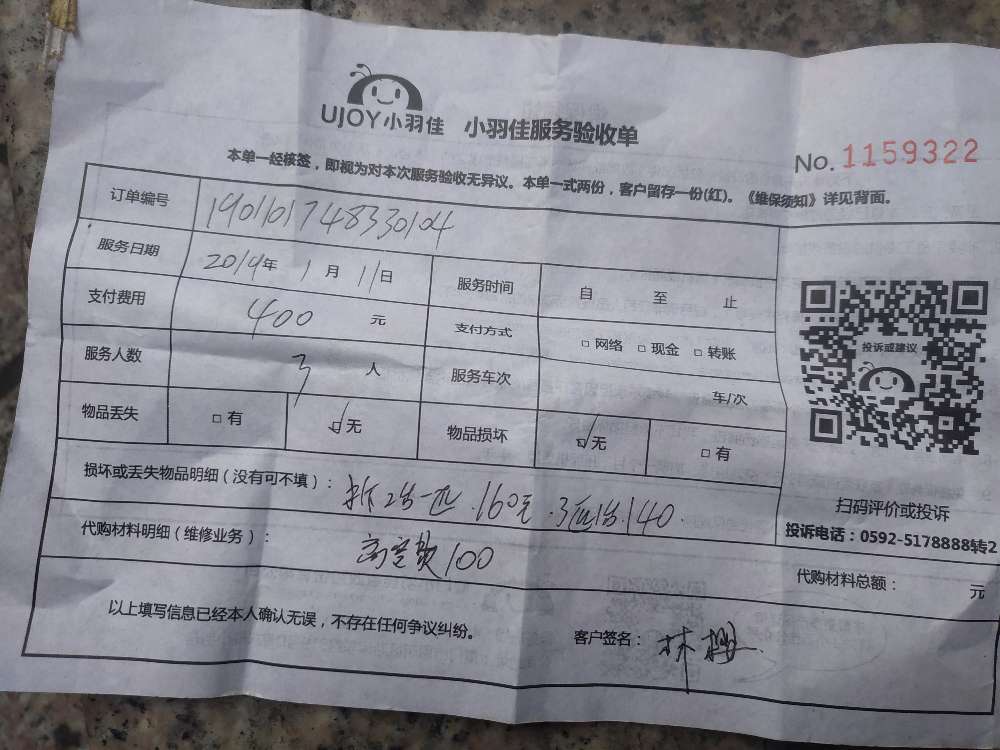 UJOY小羽佳 小羽佳服务验收单
No. 1159322
本单一经核签，即视为对本次服务验收无异议。本单一式两份，客户留存一份(红)。《维保须知》详见背面。
订单编号 1901101748330104
服务日期 2019年 1月 11日 服务时间 自 至 止
支付费用 400 元 支付方式 □ 网络 □ 现金 □ 转账
投诉或建议
服务人数 3 人 服务车次 车/次
物品丢失 □ 有 ☑ 无 物品损坏 ☑ 无 □ 有
损坏或丢失物品明细（没有可不填）： 拆2台一匹.160元.3匹1台.140.
扫码评价或投诉
投诉电话：0592-5178888转2
代购材料明细（维修业务）： 高空费100
代购材料总额： 元
以上填写信息已经本人确认无误，不存在任何争议纠纷。 客户签名： 林